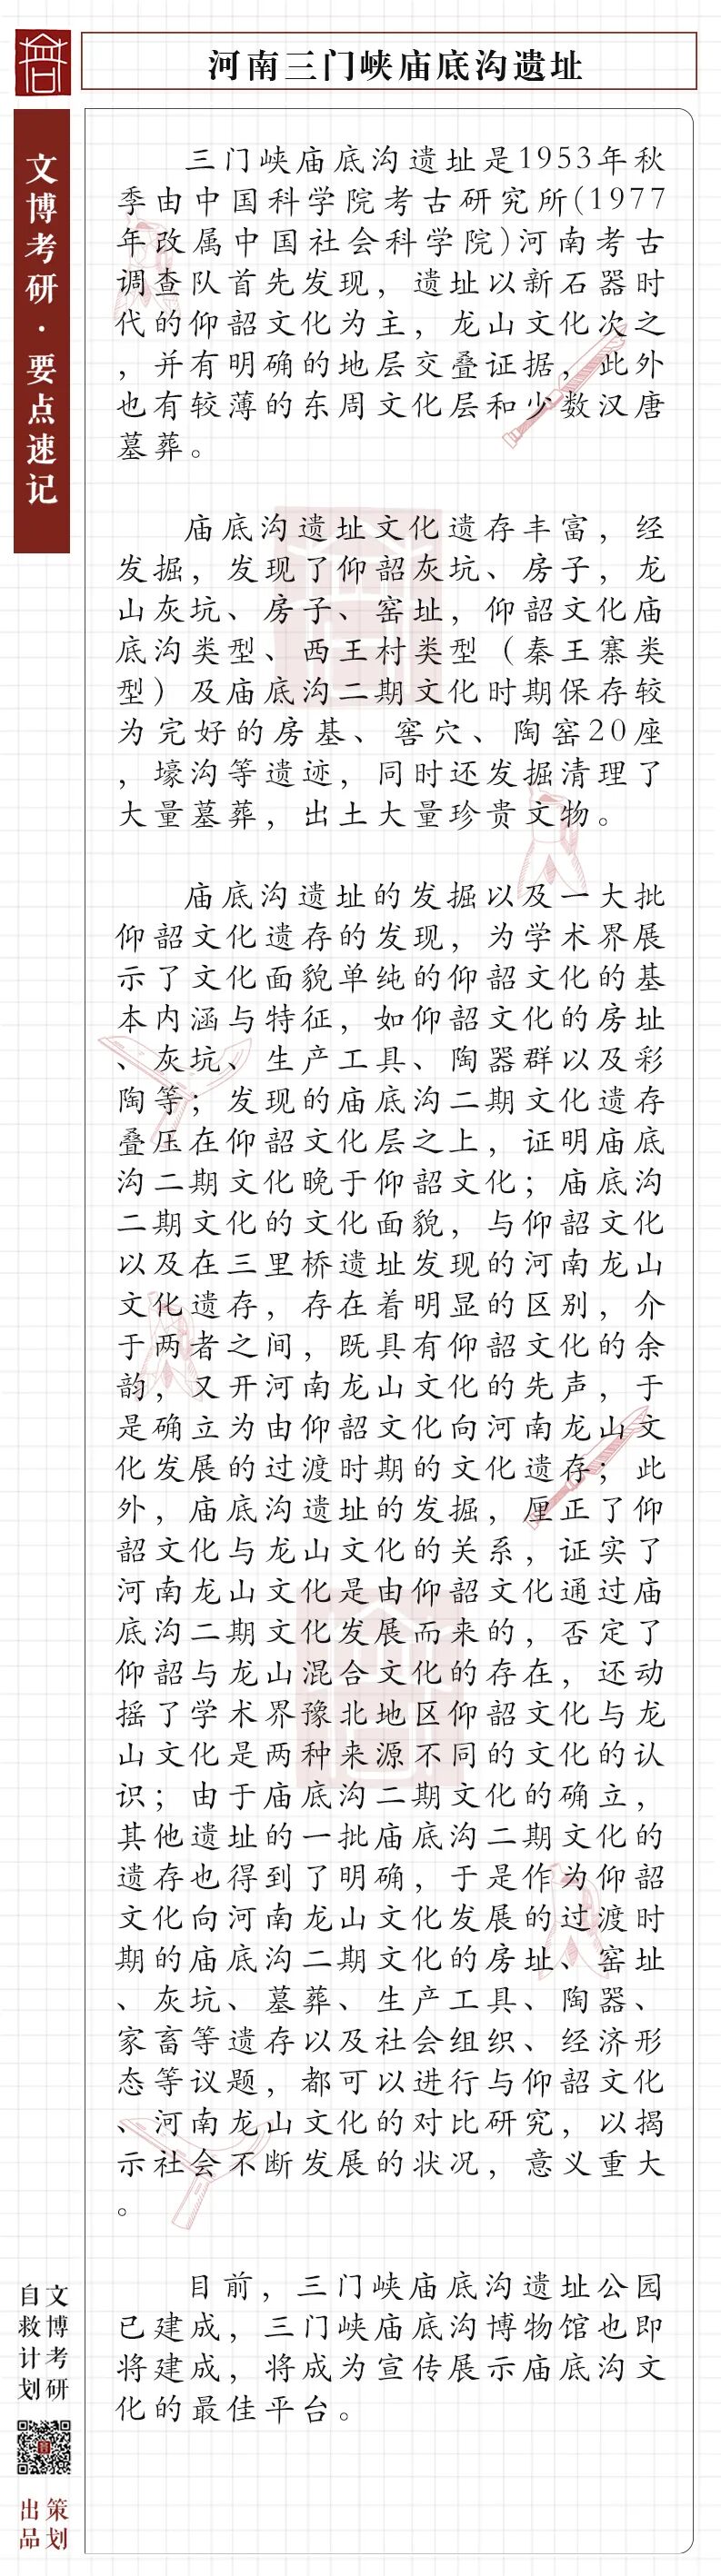 河南三门峡庙底沟遗址
文博考研·要点速记
三门峡庙底沟遗址是1953年秋
季由中国科学院考古研究所(1977
年改属中国社会科学院)河南考古
调查队首先发现，遗址以新石器时
代的仰韶文化为主，龙山文化次之
，并有明确的地层交叠证据，此外
也有较薄的东周文化层和少数汉唐
墓葬。
庙底沟遗址文化遗存丰富，经
发掘，发现了仰韶灰坑、房子，龙
山灰坑、房子、窑址，仰韶文化庙
底沟类型、西王村类型（秦王寨类
型）及庙底沟二期文化时期保存较
为完好的房基、窖穴、陶窑20座
，壕沟等遗迹，同时还发掘清理了
大量墓葬，出土大量珍贵文物。
庙底沟遗址的发掘以及一大批
仰韶文化遗存的发现，为学术界展
示了文化面貌单纯的仰韶文化的基
本内涵与特征，如仰韶文化的房址
、灰坑、生产工具、陶器群以及彩
陶等；发现的庙底沟二期文化遗存
叠压在仰韶文化层之上，证明庙底
沟二期文化晚于仰韶文化；庙底沟
二期文化的文化面貌，与仰韶文化
以及在三里桥遗址发现的河南龙山
文化遗存，存在着明显的区别，介
于两者之间，既具有仰韶文化的余
韵，又开河南龙山文化的先声，于
是确立为由仰韶文化向河南龙山文
化发展的过渡时期的文化遗存；此
外，庙底沟遗址的发掘，厘正了仰
韶文化与龙山文化的关系，证实了
河南龙山文化是由仰韶文化通过庙
底沟二期文化发展而来的，否定了
仰韶与龙山混合文化的存在，还动
摇了学术界豫北地区仰韶文化与龙
山文化是两种来源不同的文化的认
识；由于庙底沟二期文化的确立，
其他遗址的一批庙底沟二期文化的
遗存也得到了明确，于是作为仰韶
文化向河南龙山文化发展的过渡时
期的庙底沟二期文化的房址、窑址
、灰坑、墓葬、生产工具、陶器、
家畜等遗存以及社会组织、经济形
态等议题，都可以进行与仰韶文化
、河南龙山文化的对比研究，以揭
示社会不断发展的状况，意义重大
。
目前，三门峡庙底沟遗址公园
已建成，三门峡庙底沟博物馆也即
将建成，将成为宣传展示庙底沟文
化的最佳平台。
文博考研
自救计划
策划
出品